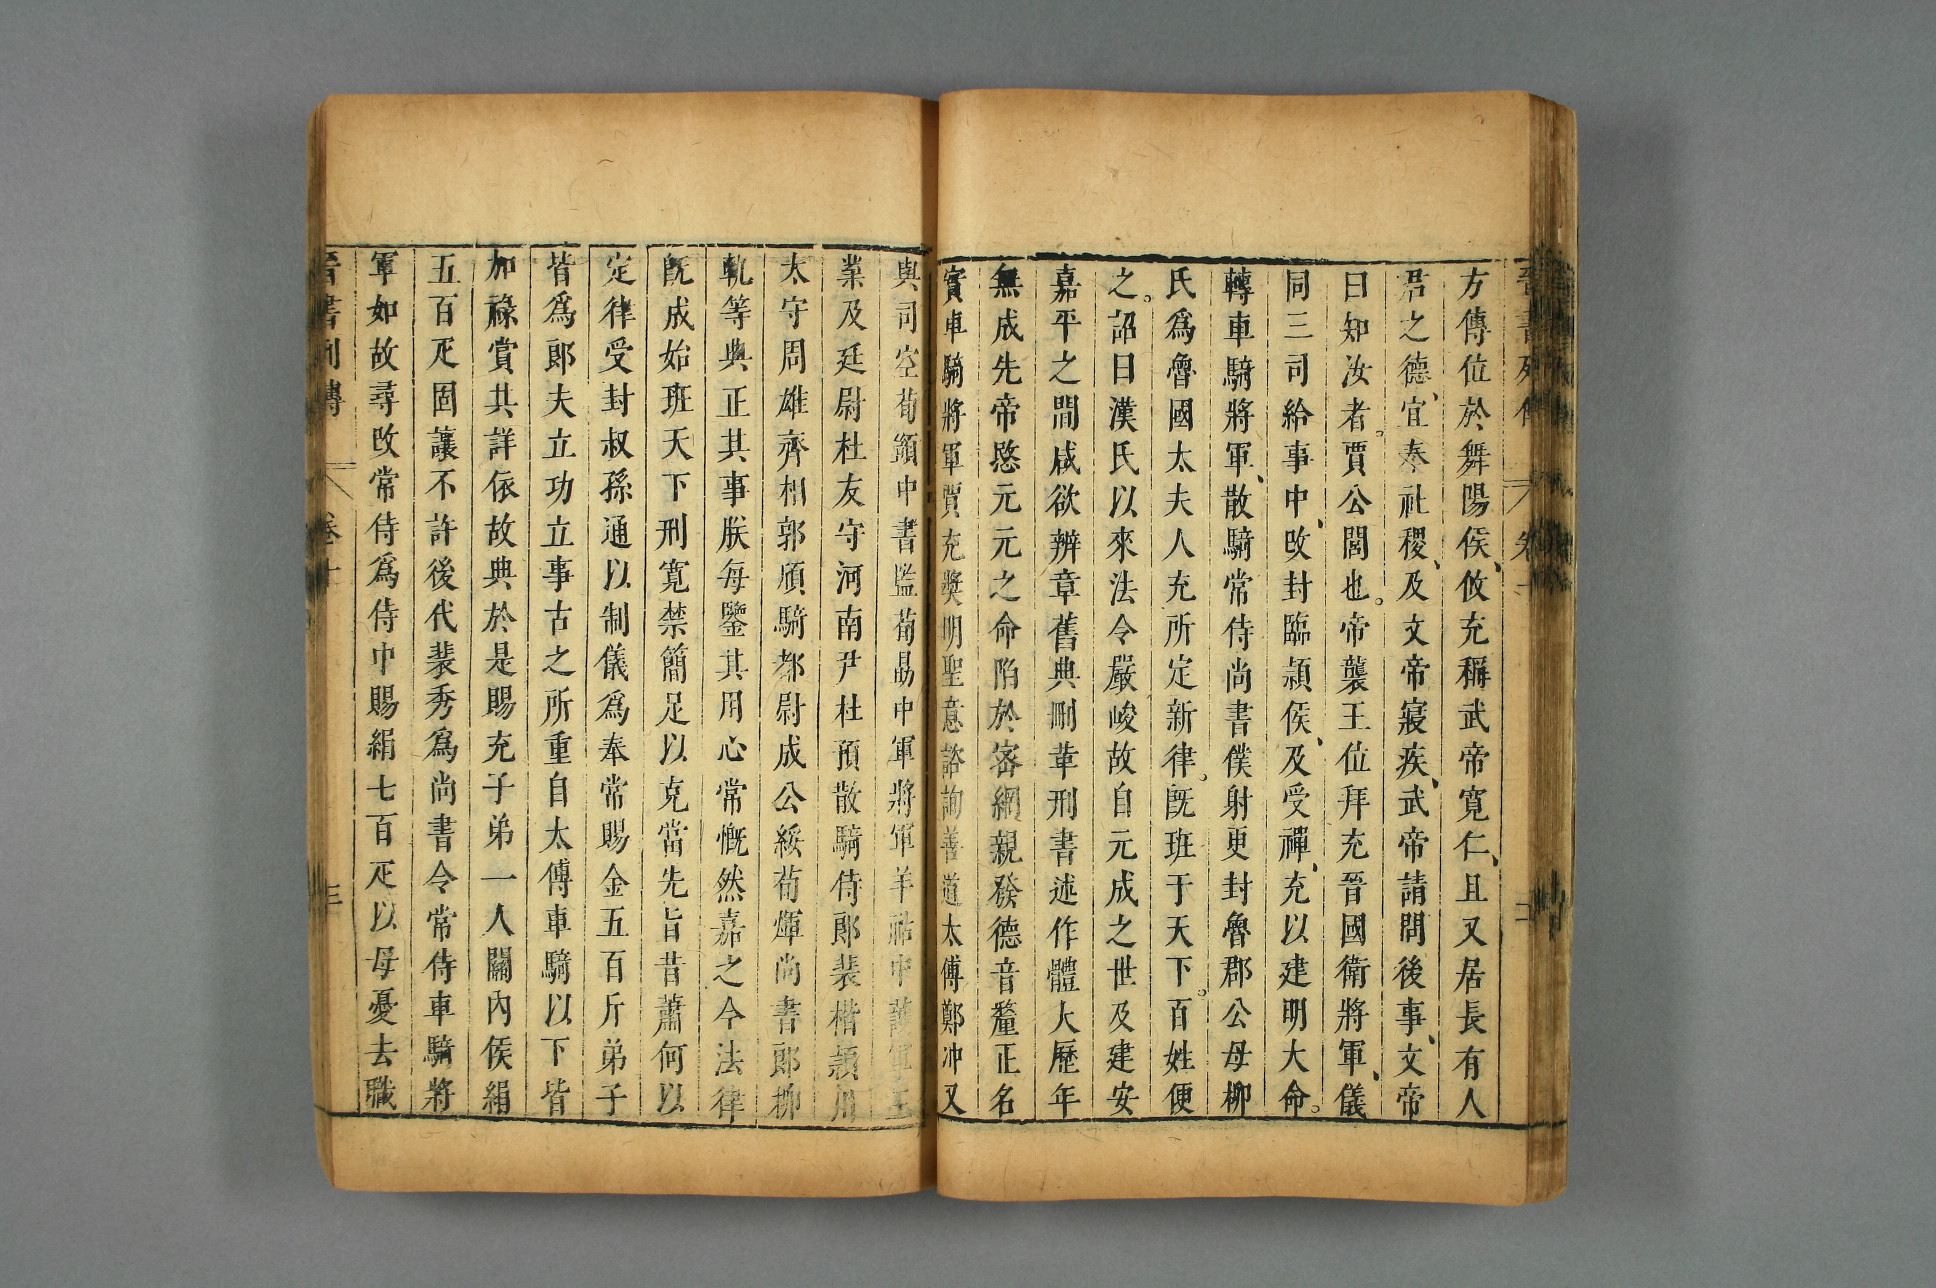 方傳位於舞陽侯、攸充稱武帝寬仁、且又居長有人
君之德、宜奉社稷、及文帝寢疾、武帝請問後事、文帝
曰知汝者。賈公閭也。帝襲王位拜充晉國衛將軍、儀
同三司給事中、改封臨潁侯、及受禪、充以建明大命。
轉車騎將軍、散騎常侍尚書僕射更封魯郡公母柳
氏爲魯國太夫人充所定新律。旣班于天下。百姓便
之。詔曰漢氏以來法令嚴峻故自元成之世及建安
嘉平之間咸欲辨章舊典刪革刑書述作體大歷年
無成先帝愍元元之命陷於密網親發德音釐正名
實車騎將軍賈充奬明聖意諮詢善道太傅鄭冲又
與司空荀顗中書監荀勗中軍將軍羊祜中護軍王
業及廷尉杜友守河南尹杜預散騎侍郎裴楷潁川
太守周雄齊相郭頎騎都尉成公綏荀煇尚書郎柳
軌等典正其事朕每鑒其用心常慨然嘉之今法律
旣成始班天下刑寬禁簡足以克當先旨昔蕭何以
定律受封叔孫通以制儀爲奉常賜金五百斤弟子
皆爲郎夫立功立事古之所重自太傅車騎以下皆
加祿賞其詳依故典於是賜充子弟一人關內侯絹
五百疋固讓不許後代裴秀爲尚書令常侍車騎將
軍如故尋改常侍爲侍中賜絹七百疋以母憂去職
晉書列傳 卷十 三